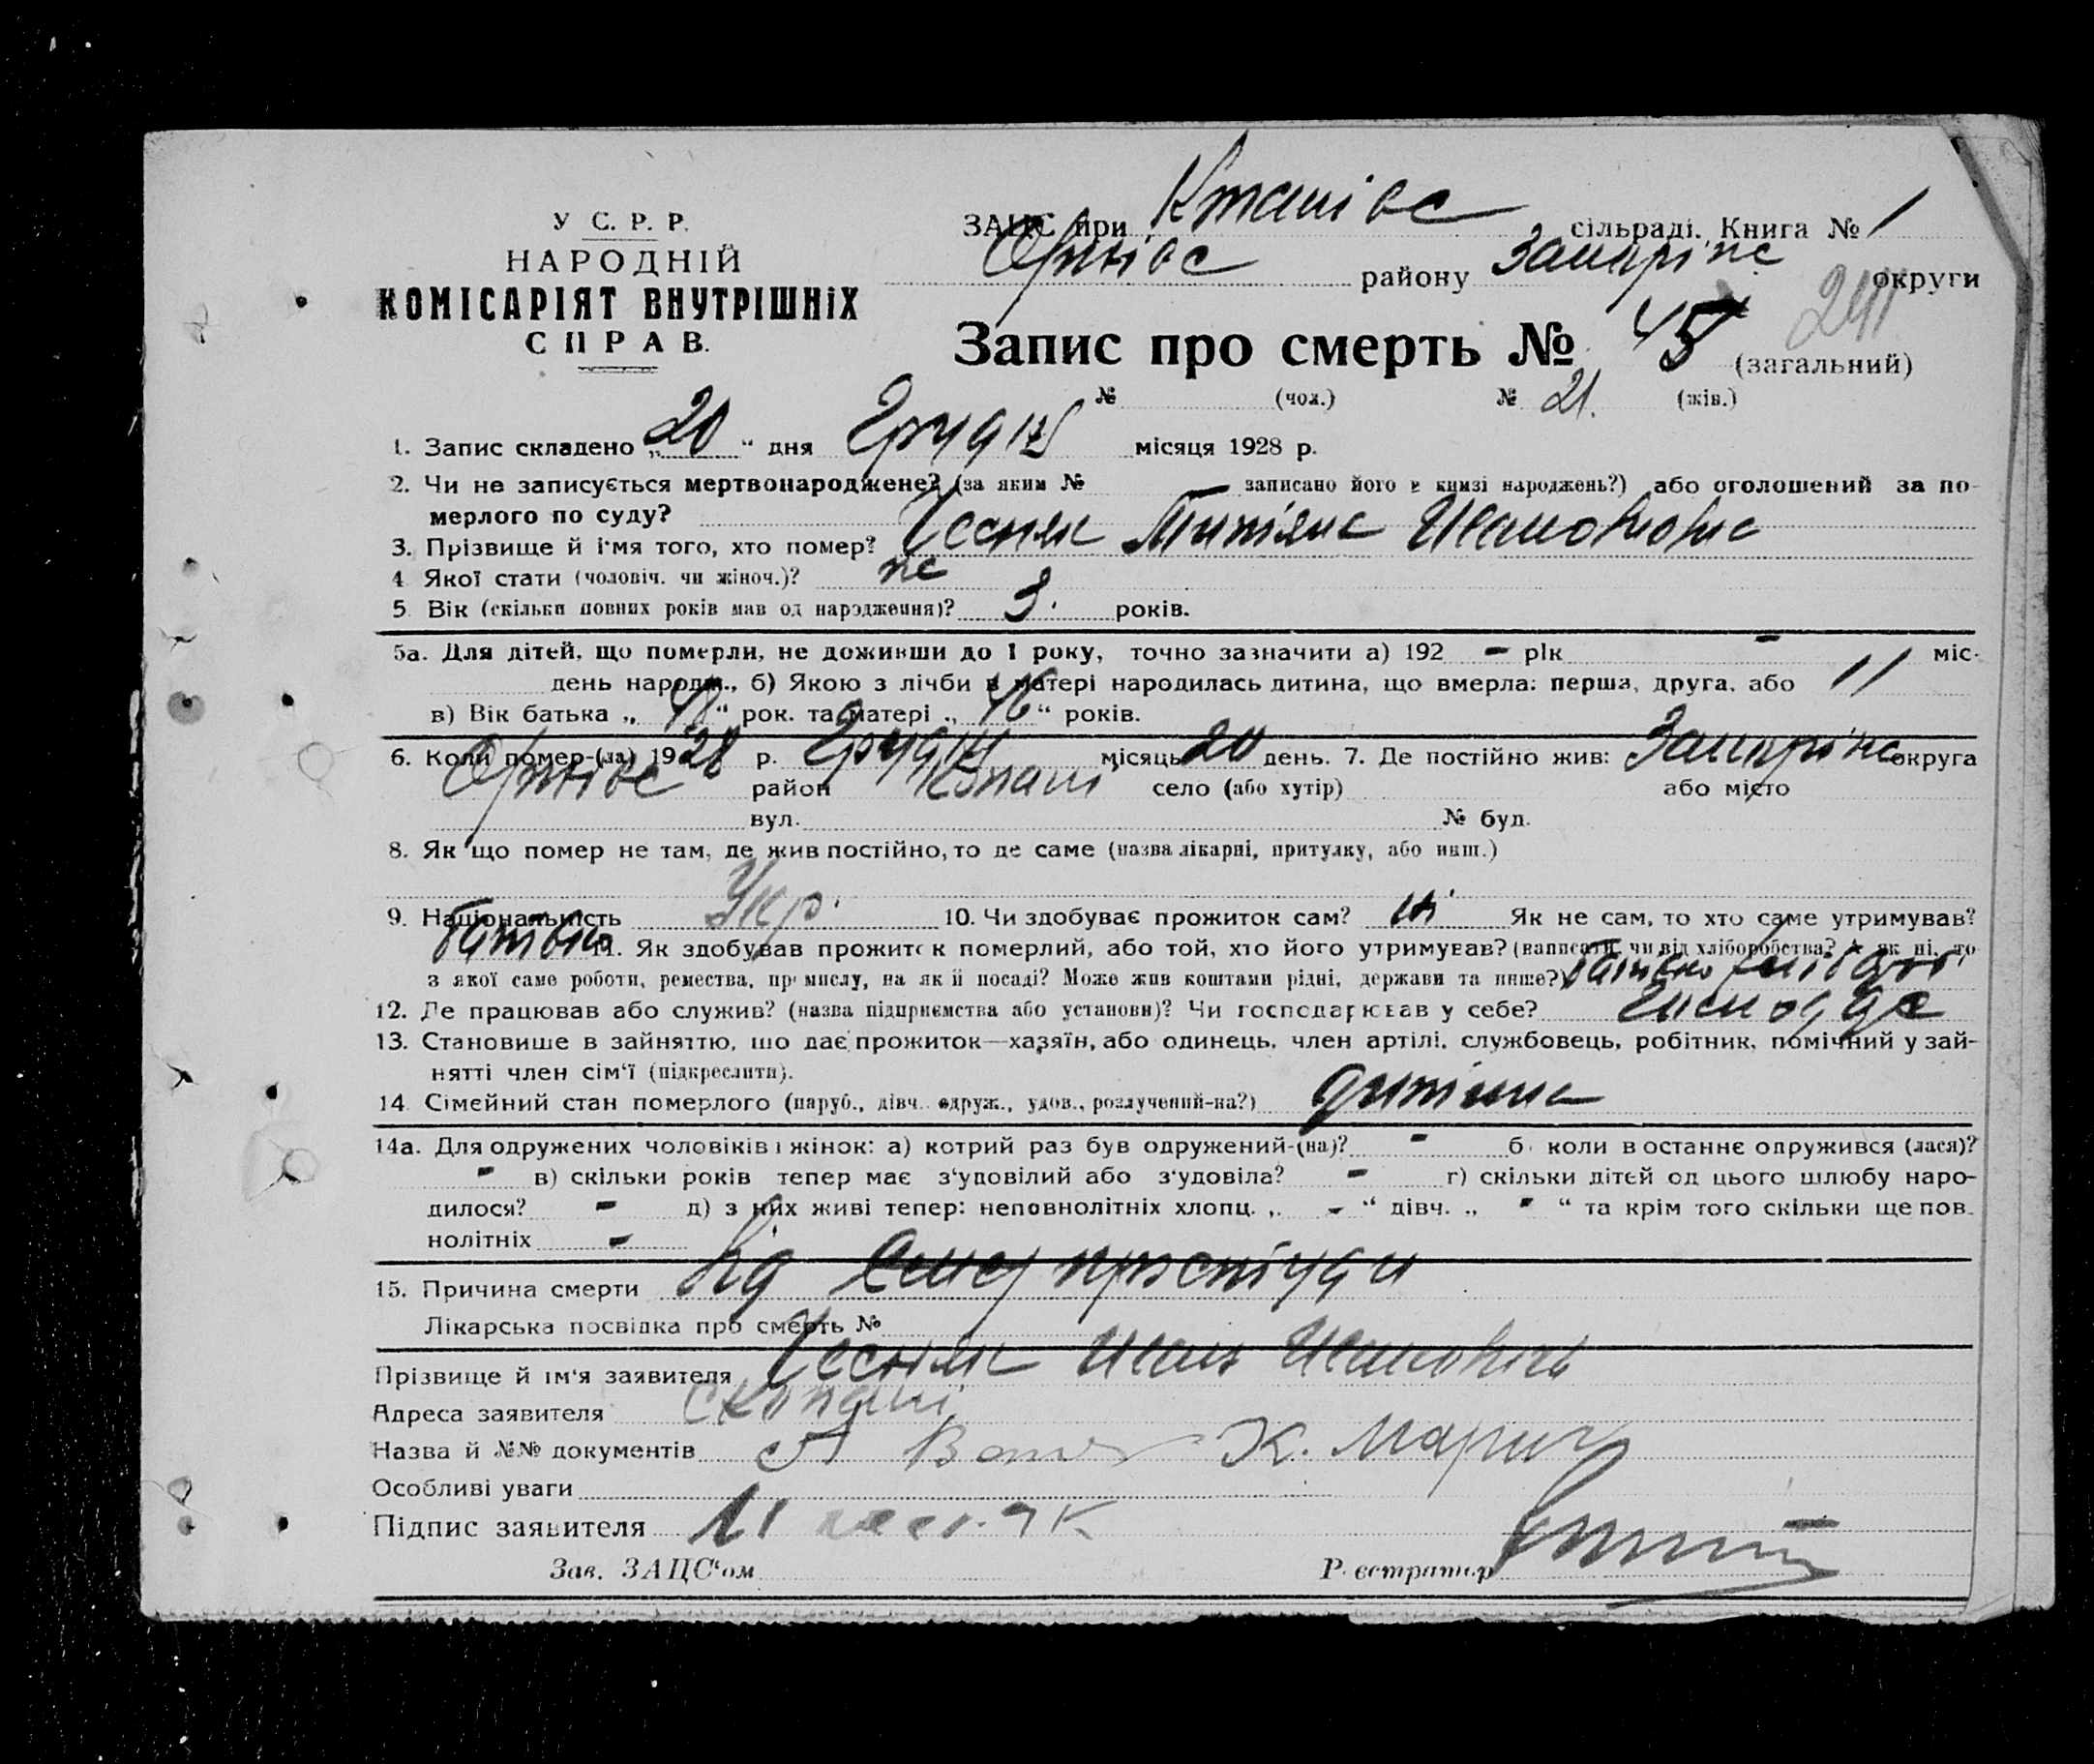 У С. Р. Р.
НАРОДНІЙ
КОМІСАРІЯТ ВНУТРІШНІХ
СПРАВ.
ЗАЦС при сільраді. Книга № 1
району округи
Запис про смерть № 45 (загальний)
№ (чол.) № 21. (жін.)
1. Запис складено „ 20 “ дня Грудня місяця 1928 р.
2. Чи не записується мертвонароджене? (за яким № записано його в книзі народжень?) або оголошений за по-
мерлого по суду?
3. Прізвище й ім'я того, хто помер?
4 Якої стати (чоловіч. чи жіноч.)?
5 Вік (скільки повних років мав од народження)? 3. років.
5а. Для дітей, що померли, не доживши до 1 року, точно зазначити а) 192 - рік - міс.
день народж., б) Якою з лічби в матері народилась дитина, що вмерла: перша, друга, або 11
в) Вік батька „ “ рок. та матері „ 46 “ років.
6. Коли помер-(ла) 1928 р. Грудня місяць 20 день. 7. Де постійно жив: округа
район Копані село (або хутір) або місто
вул. № буд.
8. Як що помер не там, де жив постійно, то де саме (назва лікарні, притулку, або инш.)
9. Національність Укр. 10. Чи здобуває прожиток сам? ні Як не сам, то хто саме утримував?
батько 11. Як здобував прожиток померлий, або той, хто його утримував? (написати, чи від хліборобства? А як ні, то
з якої саме роботи, ремества, промислу, на якій посаді? Може жив коштами рідні, держави та инше?)
12. Де працював або служив? (назва підприємства або установи)? Чи господарював у себе?
13. Становище в зайняттю, що дає прожиток—хазяїн, або одинець, член артілі, службовець, робітник, помічний у зай-
нятті член сім'ї (підкреслити).
14. Сімейний стан померлого (паруб., дівч. одруж., удов., розлучений-на?) дитина
14а. Для одружених чоловіків і жінок: а) котрий раз був одружений-(на)? - б) коли в останнє одружився (лася)?
- в) скільки років тепер має з'удовілий або з'удовіла? - г) скільки дітей од цього шлюбу наро-
дилося? - д) з них живі тепер: неповнолітніх хлопц. „ - “ дівч. „ - “ та крім того скільки ще пов.
нолітніх -
15. Причина смерти від простуди
Лікарська посвідка про смерть №
Прізвище й ім'я заявителя Іван Іванович
Адреса заявителя с Копані
Назва й №№ документів
Особливі уваги
Підпис заявителя
Зав. ЗАЦС'ом Реєстратор